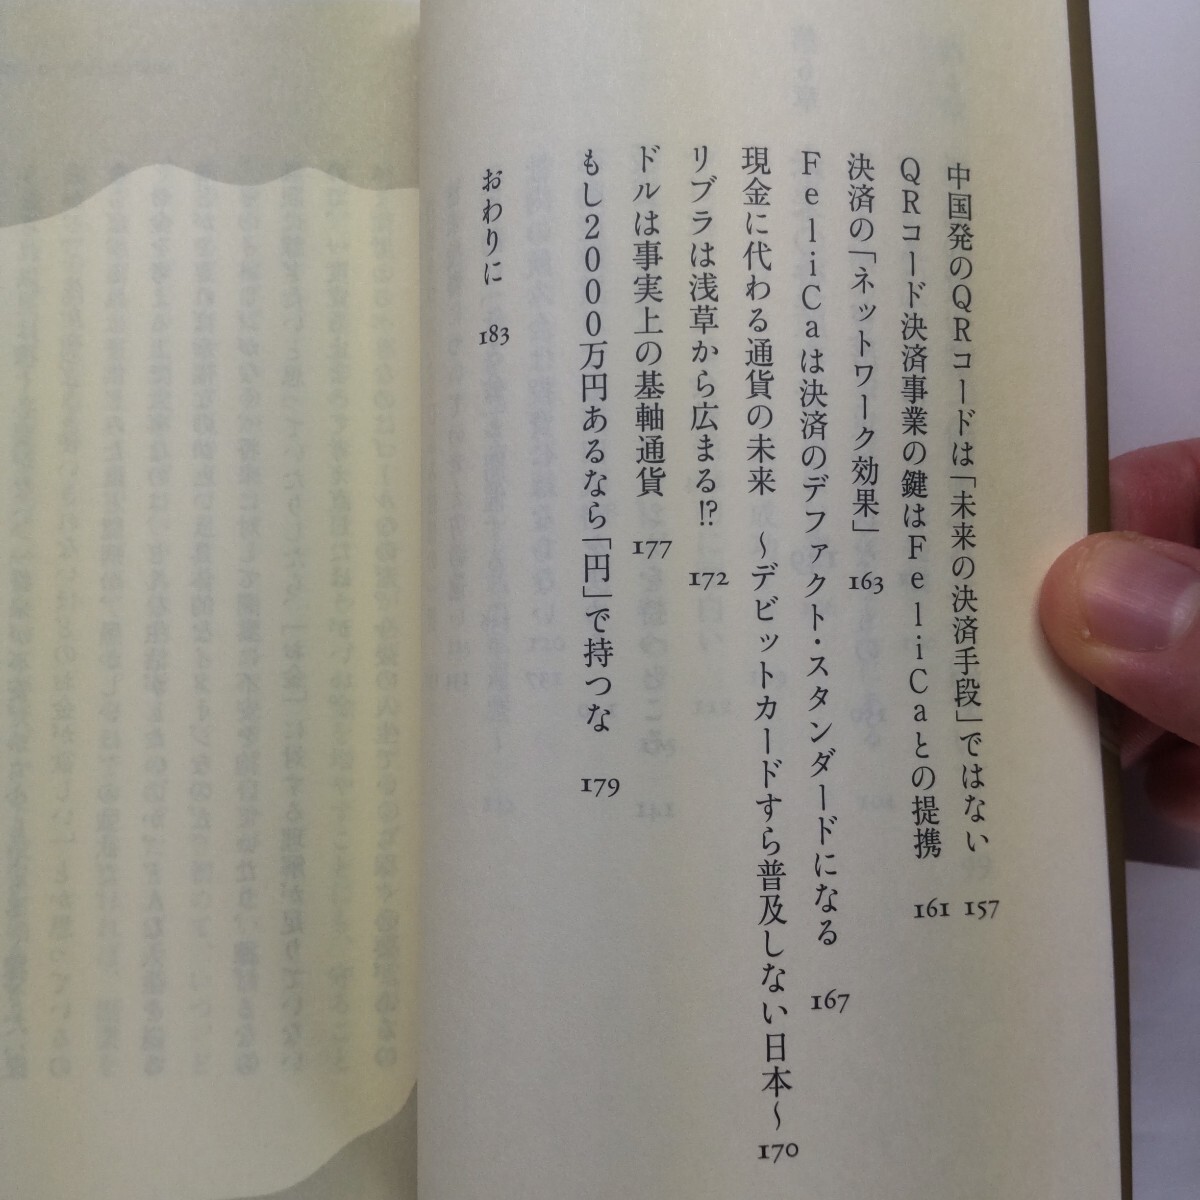 中国発のQRコードは「未来の決済手段」ではない 157
QRコード決済事業の鍵はFeliCaとの提携 161
決済の「ネットワーク効果」 163
FeliCaは決済のデファクト・スタンダードになる 167
現金に代わる通貨の未来 〜デビットカードすら普及しない日本〜 170
リブラは浅草から広まる!? 172
ドルは事実上の基軸通貨 177
もし2000万円あるなら「円」で持つな 179
おわりに 183